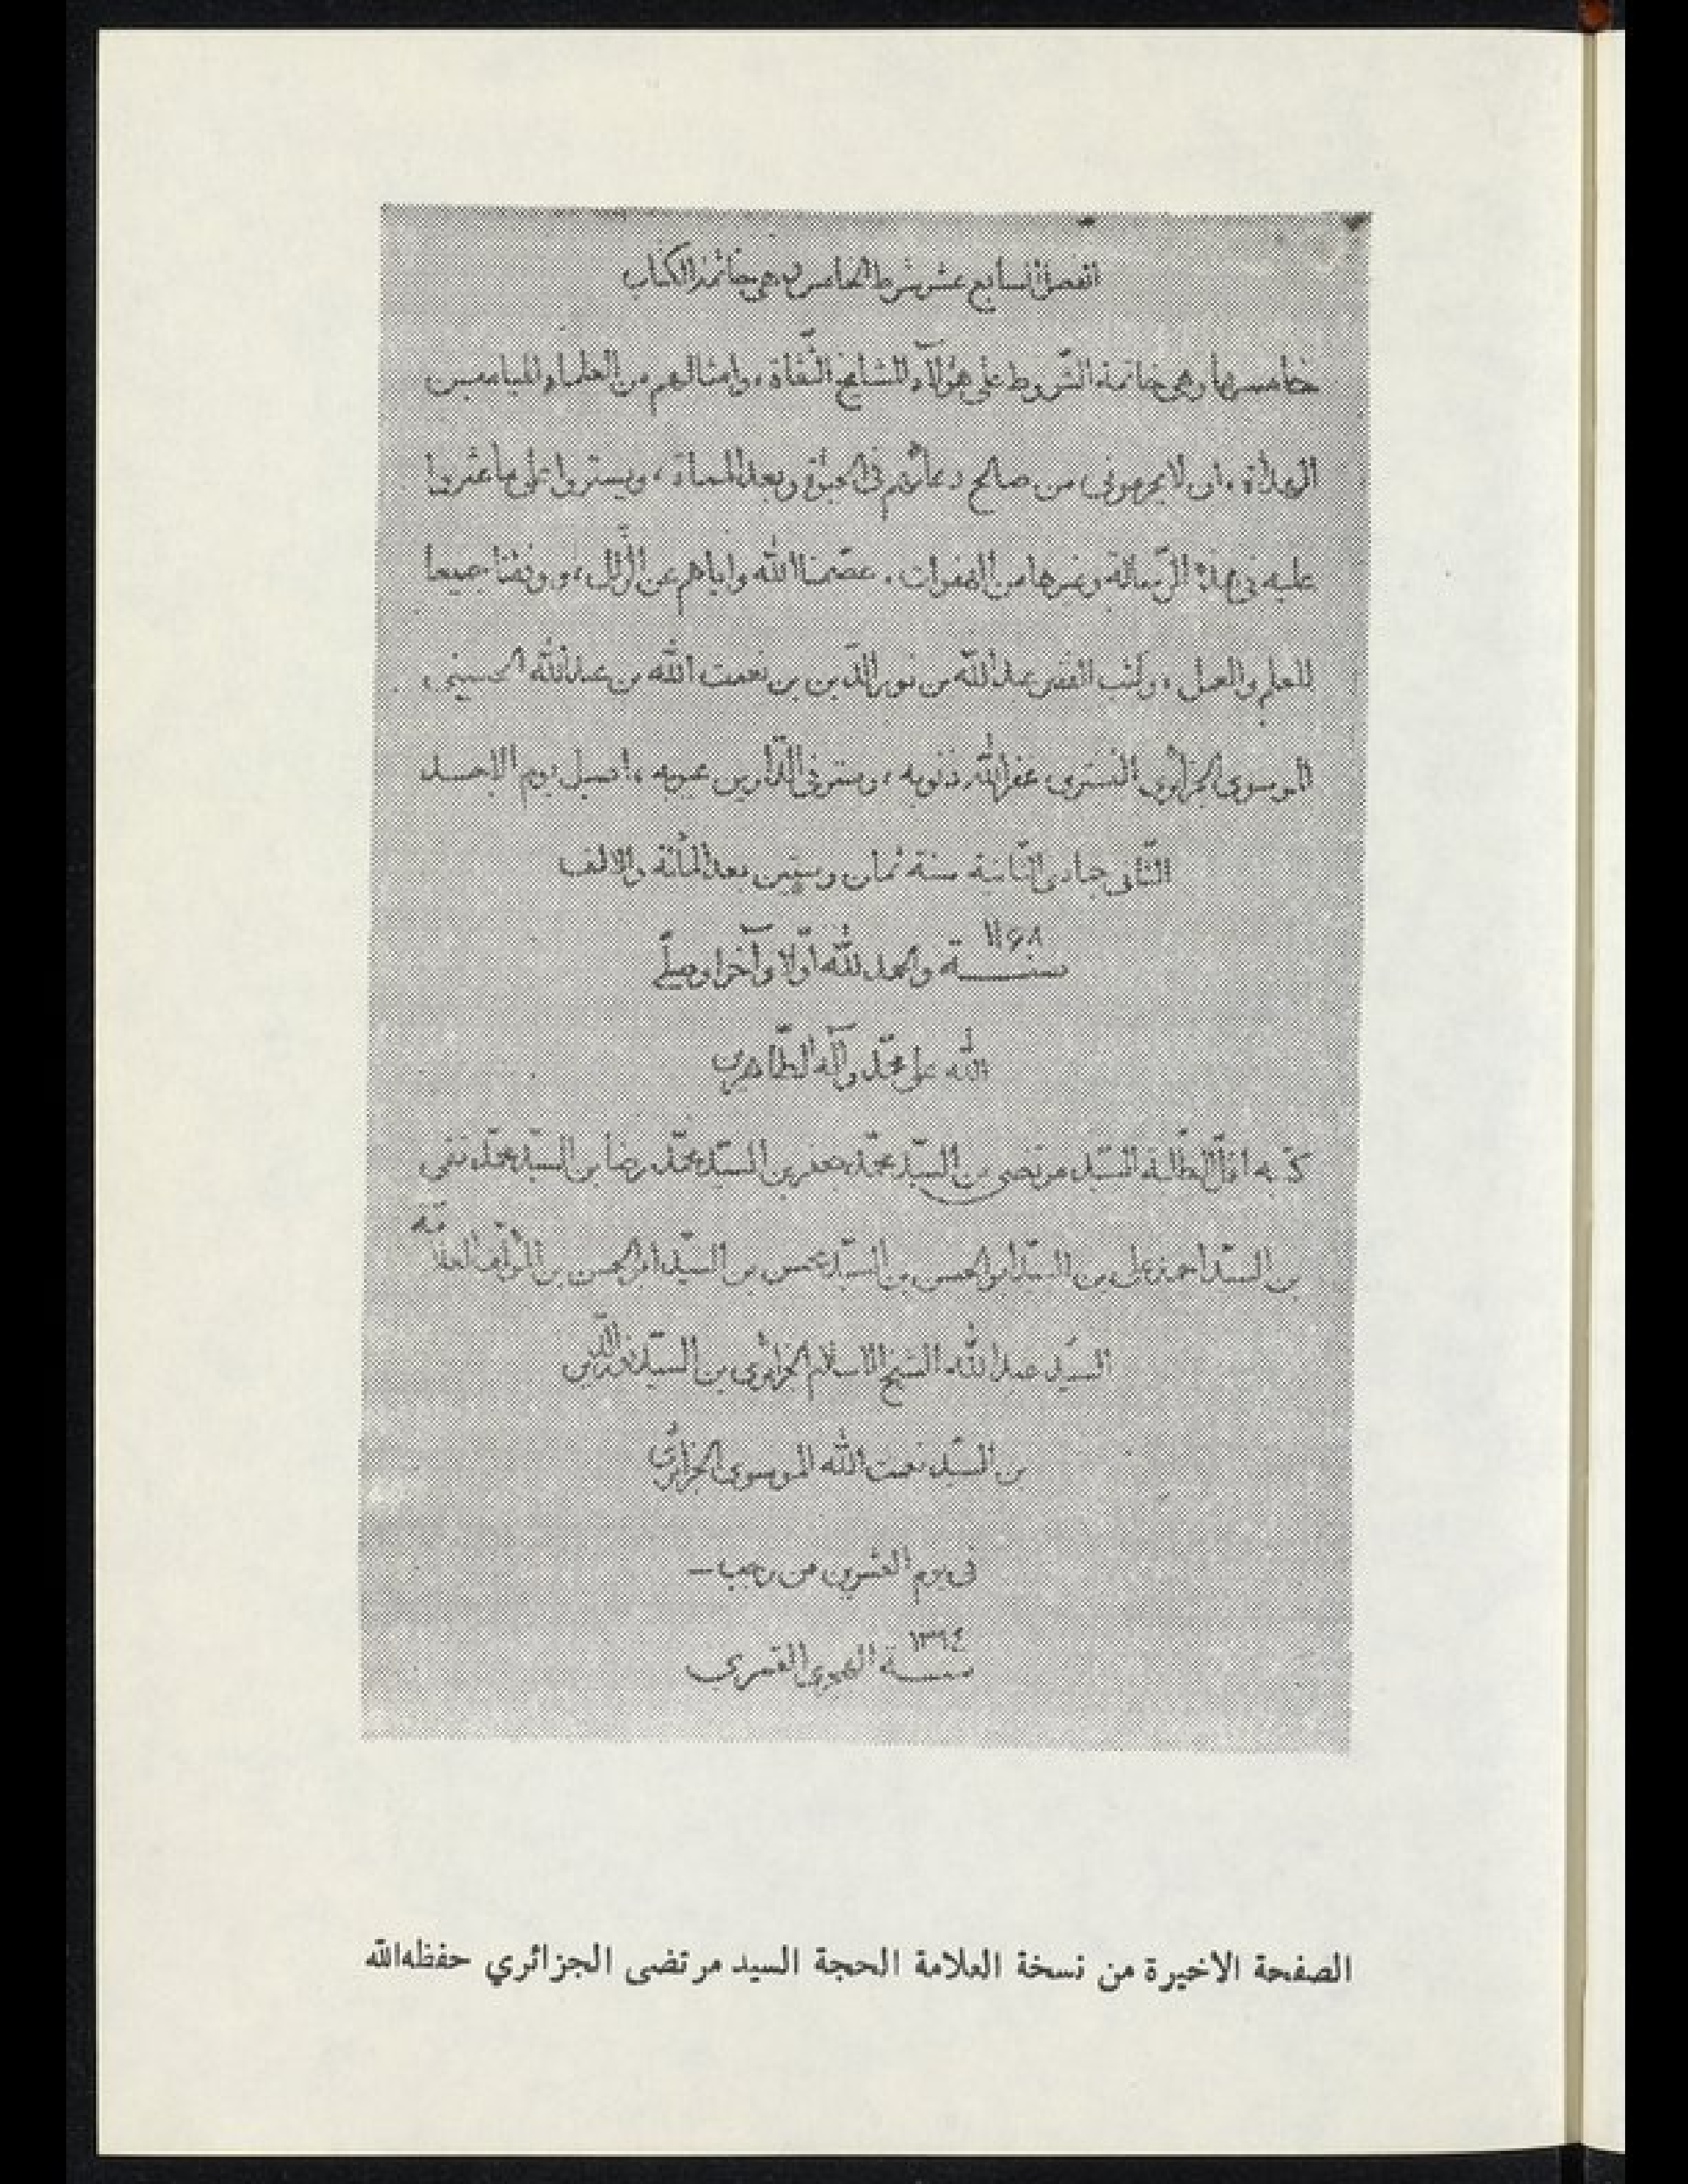 الفصل السابع عشر شرط الخامس وهي خاتمة الكتاب
خامسها وهي خاتمة الشّروط على هؤلآء المشايخ الثّقاة، وامثالهم من العلماء الميامين
الهداة، ان لا يحرموني من صالح دعائهم في الحيوة وبعد المماة، ويستروا على ما عثروا
عليه في هذه الرّسالة وغيرها من الهفوات، عصمنا الله واياهم عن الزّلل، ووفقنا جميعا
للعلم والعمل، وكتب الفقير عبد الله بن نور الدّين بن نعمت الله بن عبد الله الحسيني
الموسوي الجزائري التستري غفر الله ذنوبه، وستر في الدّارين عيوبه، اصيل يوم الاحد
الثّاني جمادى الثّانية سنة ثمان وستين بعد المائة والالف
۱۱۶۸
سنة والحمد لله اوّلا وآخرا وصلّى
الله على محمّد وآله الطّاهرين
كتبه اقلّ الطّلبة السّيّد مرتضى بن السّيّد محمّد جعفر بن السّيّد محمّد رضا بن السّيّد محمّد تقى
بن السّيّد احمد على بن السّيّد ابو الحسن بن السّيّد محسن بن السّيّد ابو الحسن بن المؤلّف العلاّمة
السّيّد عبد الله الشيخ الاسلام الجزائري بن السّيّد نور الدّين
بن السّيّد نعمت الله الموسوي الجزائري
في يوم العشرين من رجب
١٣٦٤
سنة الهجري القمري
الصفحة الاخيرة من نسخة العلامة الحجة السيد مرتضى الجزائري حفظه الله